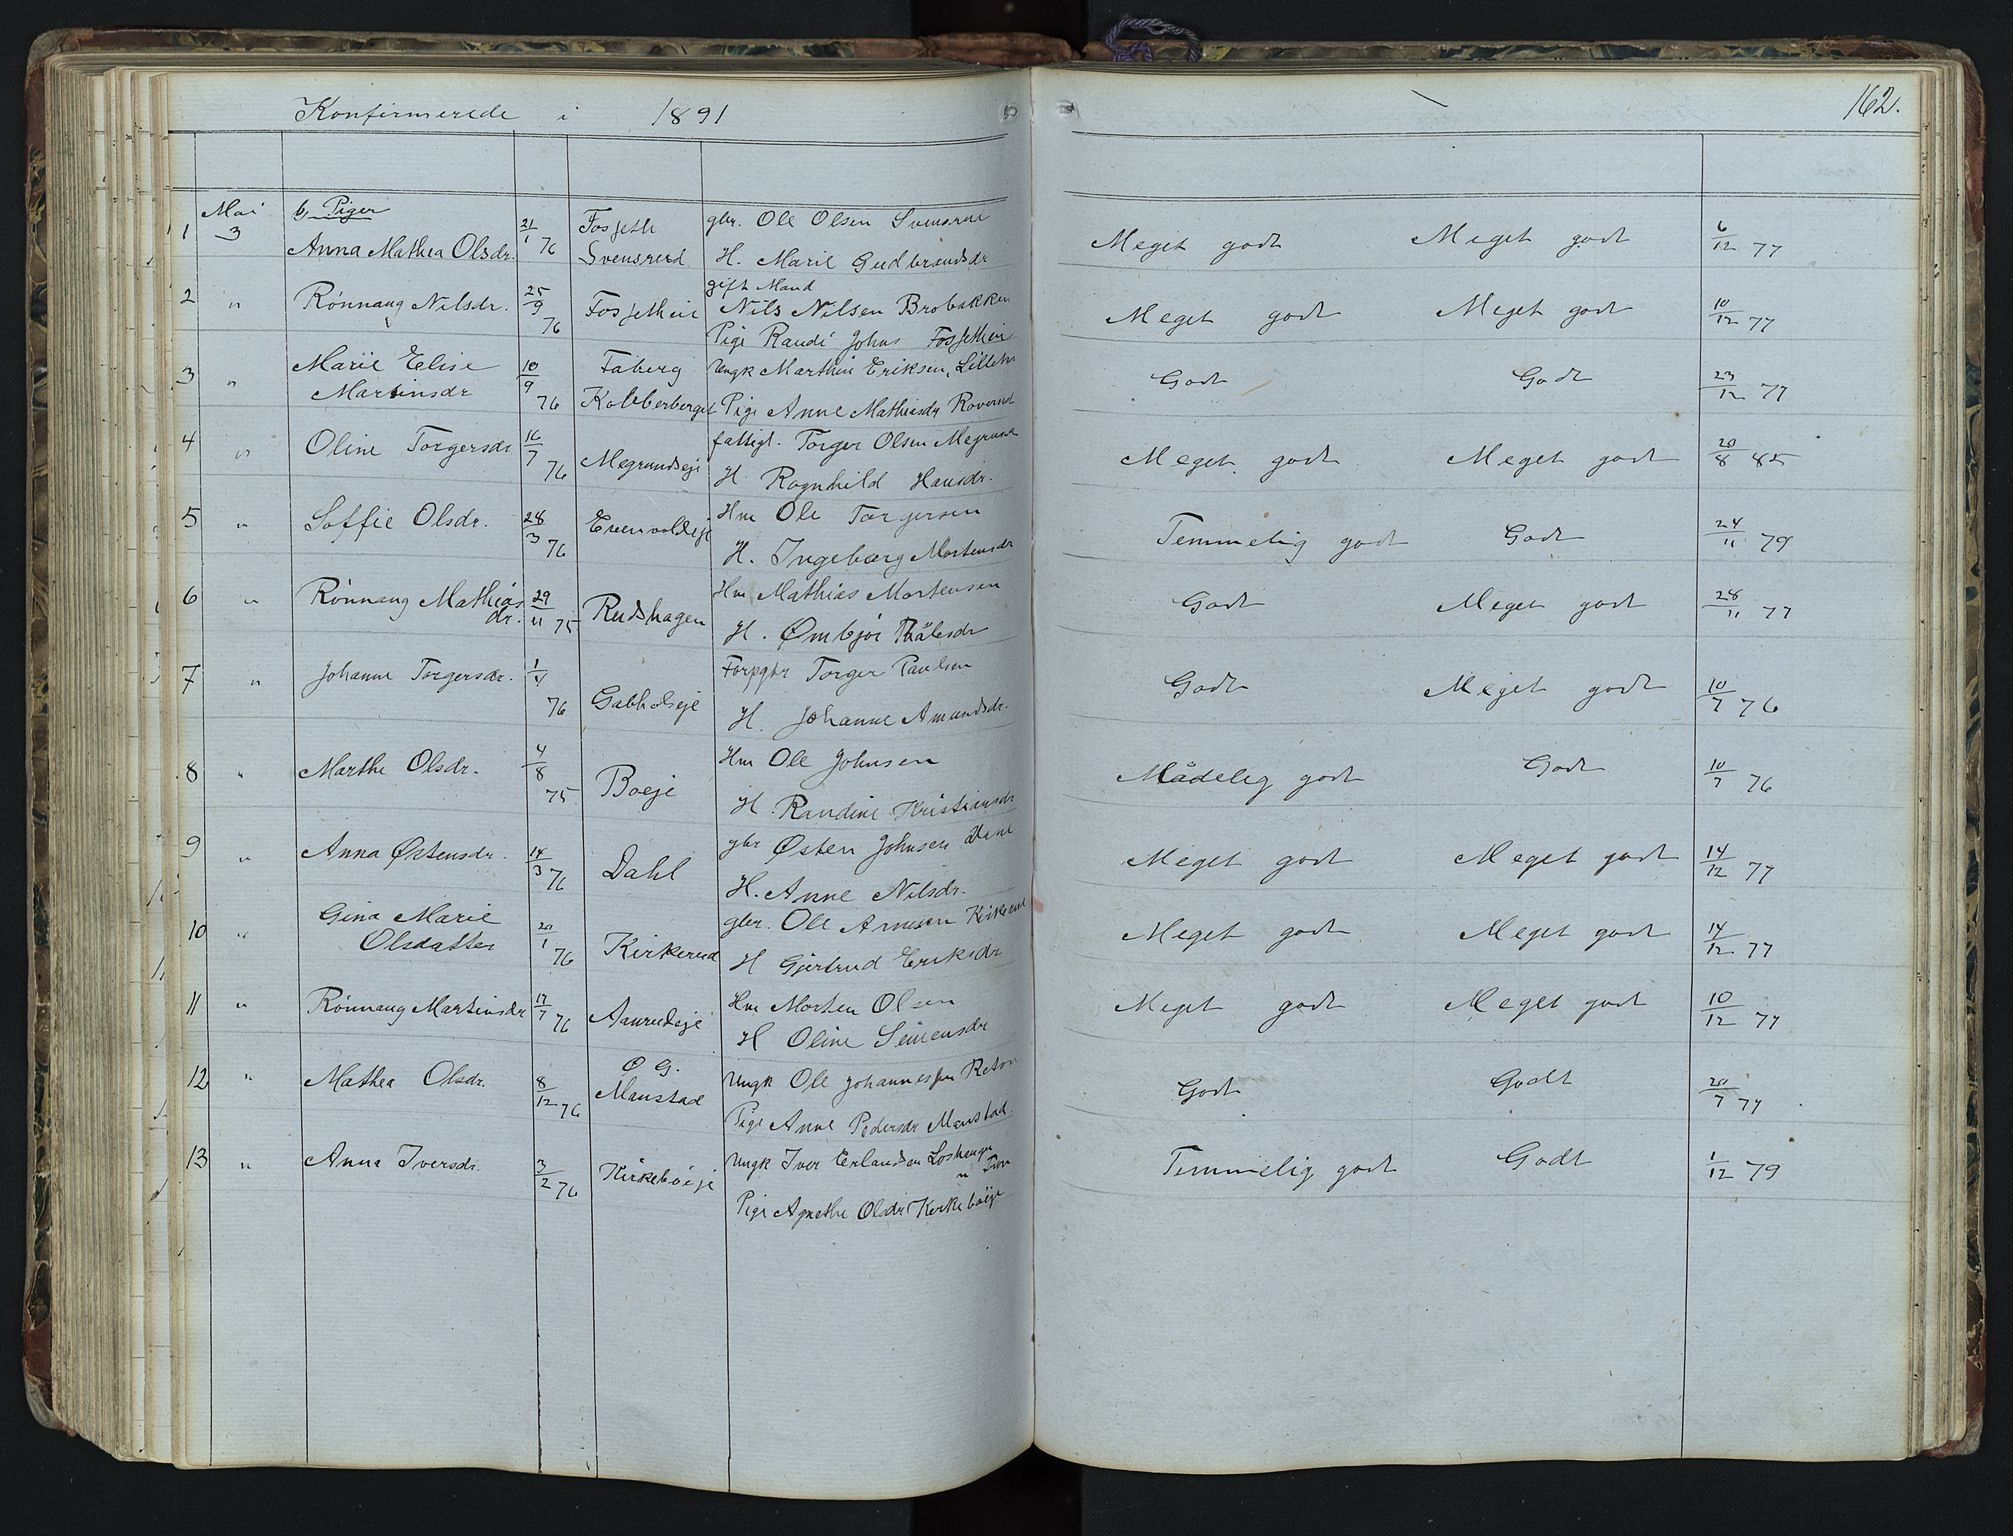 Konfirmerede i 1891
162.
Mai b, Piger
1 3 Anna Mathea Olsdr. 21/1 76 Fosseth Svensrud gbr. Ole Olsen Svensrud
H. Marie Gudbrandsdr Meget godt Meget godt 6/12 77
2 " Rønnaug Nilsdr. 25/9 76 Fossetheie gift Mand Nils Nilsen Brobakken
Pige Randi Johns Fossetheie Meget godt Meget godt 10/12 77
3 " Marie Elise Martinsdr 10/9 76 Faberg Kolberberget Ungk Marthin Eriksen, Lilleh.
Pige Anne Mathisdr Roverud Godt Godt 23/12 77
4 " Oline Torgersdr 16/7 76 Megrundseje fattigl. Torger Olsen Megrund
H Ragnhild Hansdr. Meget godt Meget godt 20/8 85
5 " Soffie Olsdr. 28/3 76 Evenvoldeje Hm Ole Torgersen
H. Ingeborg Mortensdr Temmelig godt Godt 24/11 79
6 " Rønnaug Mathias dr. 29/11 75 Rudshagen Hm Mathias Mortensen
H. Ømbjør Pålsdr Godt Meget godt 28/11 77
7 " Johanne Torgersdr. 1/4 76 Gabholseje Forpgbr Torger Paulsen
H. Johanne Amundsdr. Godt Meget godt 10/7 76
8 " Marthe Olsdr. 4/8 75 Boeje Hm Ole Johnsen
H. Randine Kristiansdr Mådelig godt Godt 10/7 76
9 " Anna Østensdr. 14/3 76 Dahl gbr Østen Johnsen
H. Anne Nilsdr. Meget godt Meget godt 14/12 77
10 " Gina Marie Olsdatter 20/1 76 Kirkerud gbr. Ole Arnesen Kirkerud
H Gjertrud Eriksdr Meget godt Meget godt 14/12 77
11 " Rønnaug Martinsdr 17/7 76 Aanrudeje Hm Morten Olsen
H Oline Simensdr Meget godt Meget godt 10/12 77
12 " Mathea Olsdr. 8/12 76 Ø G. Maustad Ungk Ole Johannessen
Pige Anne Pedersdr Maustad. Godt Godt 20/7 77
13 " Anna Iversdr. 3/2 76 Kirkebøeje Ungk Iver Erlandsen Loshaugen
Pige Agnethe Olsdr Kirkebøeje Temmelig godt Godt 1/12 79